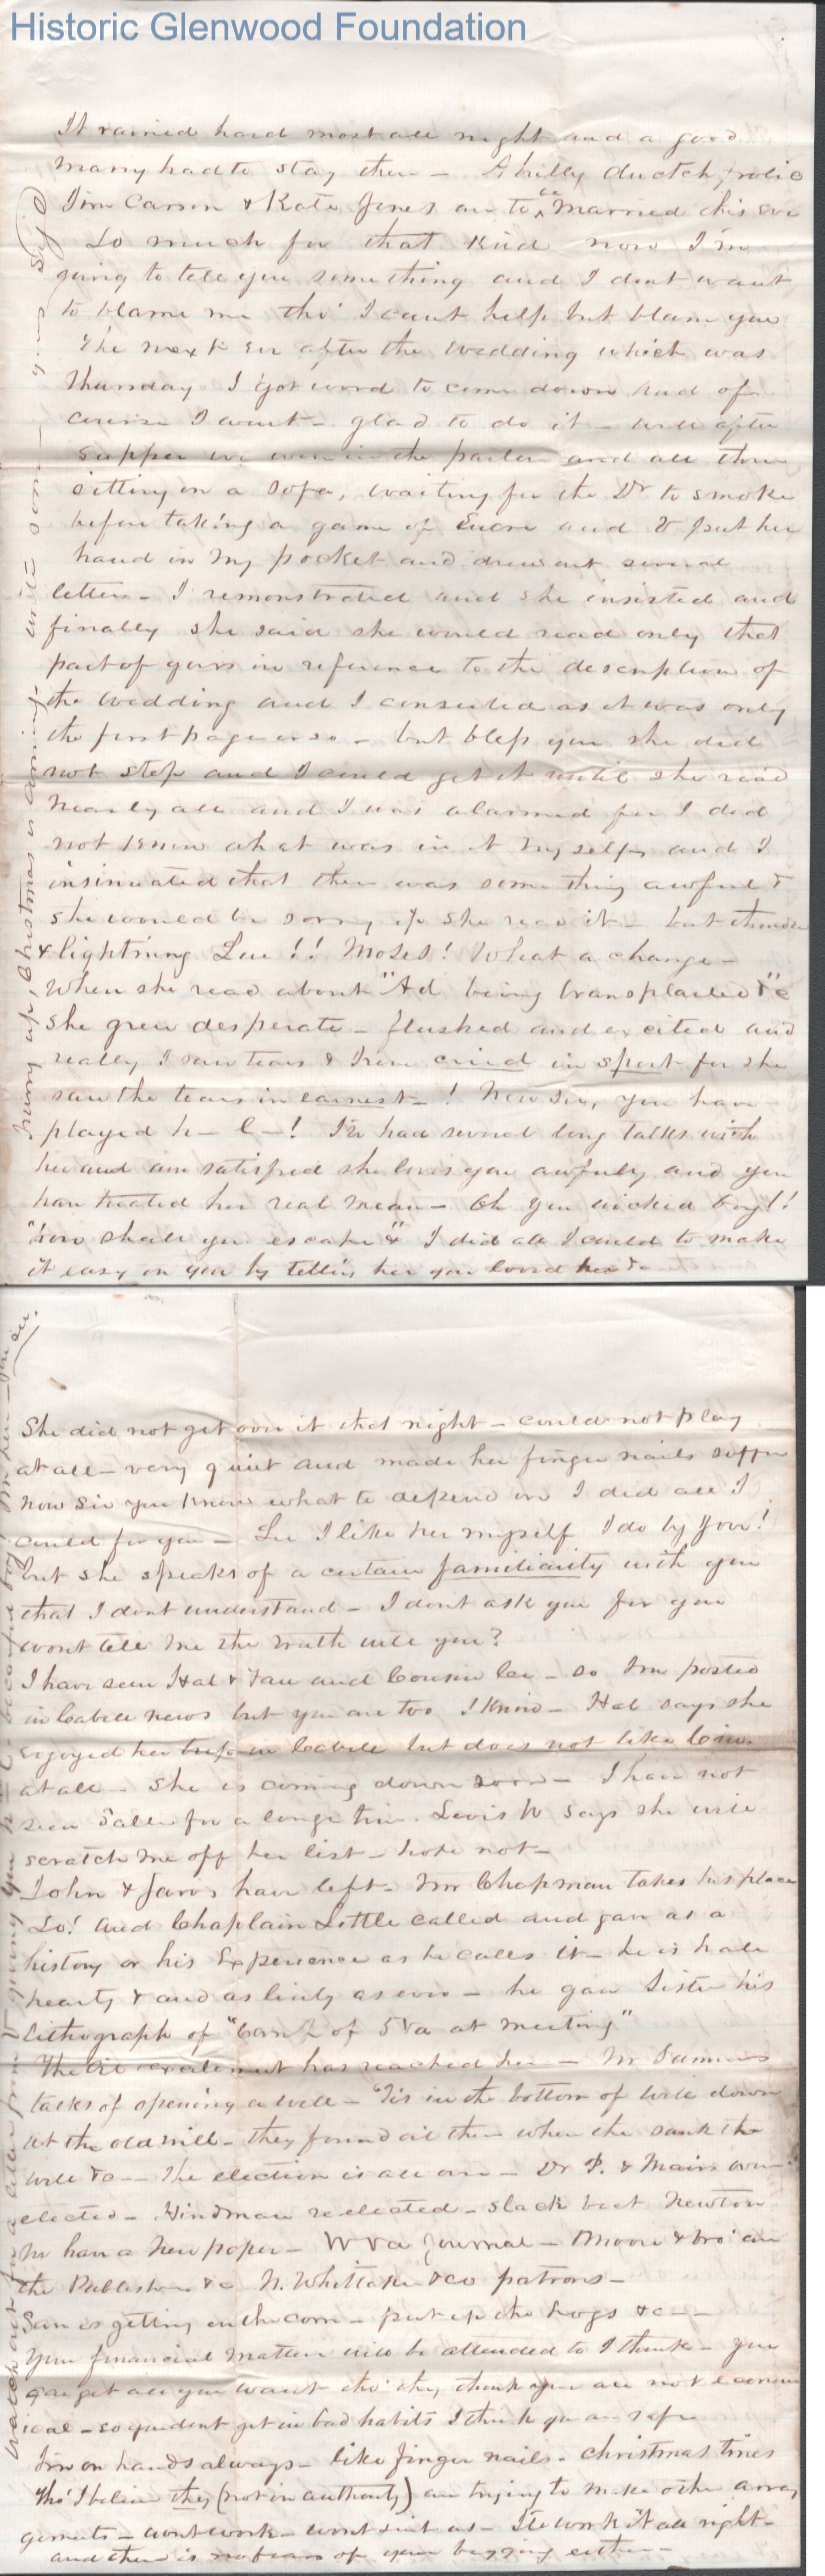 Historic Glenwood Foundation
It rained hard most all night and a good
many had to stay there - A hilly ductch frolic
Jim Carson & Kate Jones are to be married this eve
So much for that kind now I'm
going to tell you something and I dont want
to blame me tho' I cant help but blame you
The next eve after the wedding which was
Thursday I got word to come down and of
course I went - glad to do it - well after
supper we were in the parlor and all three
sitting on a sofa, waiting for the Dr to smoke
before taking a game of Eucre and put her
hand in my pocket and drew out several
letters - I remonstrated and she insisted and
finally she said she would read only that
part of yours in reference to the description of
the wedding and I consented as it was only
the first page or so - but bless you she did
not stop and I could get it until she read
nearly all and I was alarmed for I did
not know what was in it myself, and I
insinuated that there was something awful &
she would be sorry if she read it - but thunder
& lightning Lue!! Moses! What a change -
When she read about "Ad being transplanted &c"
she grew desperate - flushed and excited and
really I saw tears & cried in sport for she
saw the tears in earnest - ! Now Sir, you have
played h- l-! I've had several long talks with
her and am satisfied she loves you awfully and you
have treated her real mean - Oh you wicked boy!!
"how shall you escape" & I did all I could to make
it easy on you by telling her you loved her &c
hurry up, Christmas is coming - write soon - yours
She did not get over it that night - could not play
at all - very quiet and made her finger nails suffer
now sir you know what to depend on I did all I
could for you - Lue I like her myself I do by Jove!
but she speaks of a certain familiarity with you
that I dont understand - I dont ask you for you
wont tell me the truth will you?
I have seen Hal & Fan and Cousin - so I'm posted
in Cabell news but you are too I know - Hal says she
enjoyed her trip in Cabell but does not like
at all - She is coming down soon - I have not
seen Sallie for a longe time. Lewis W says she will
scratch me off her list - hope not -
John & Jarvis have left - Mr Chapman takes his place
Lo! and Chaplain Little called and gave us a
history or his Experience as he calls it - he is hale
hearty & and as lively as ever - he gave Sister his
lithograph of "Camp of 5 Va at meeting"
The oil excitement has reached here - Mr Summers
talks of opening a well - 'Tis in the bottom of well down
at the old mill - they found oil there when the sank the
well &c - The election is all over - Dr P. & Mairs were
elected - Hindman reelected - Slack beat Newton
We have a new paper - W Va Journal - Moore & bro' are
the Publishers &c N. Whittaker &co patrons -
Sam is getting in the corn - put up the hogs &c -
Your financial matters will be attended to I think - you
can get all you want tho' they think you are not econom
ical - so you dont get in bad habits I think you are safe
I'm on hands always - like finger nails - Christmas times
Tho' I believe they (not in authority) are trying to make other arran
gements - wont work - wont suit us - I'll work it all right -
and there is no fears of your begging either -
Watch out for a letter from giving you h-l